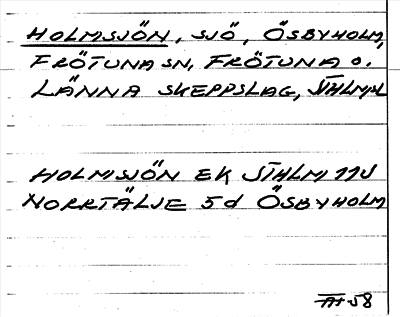 HOLMSJÖN, SJÖ, ÖSBYHOLM,
FRÖTUNA SN, FRÖTUNA O.
LÄNNA SKEPPSLAG, STHLM,L
HOLMSJÖN EK STHLM 11J
NORRTÄLJE 5d ÖSBYHOLM
58